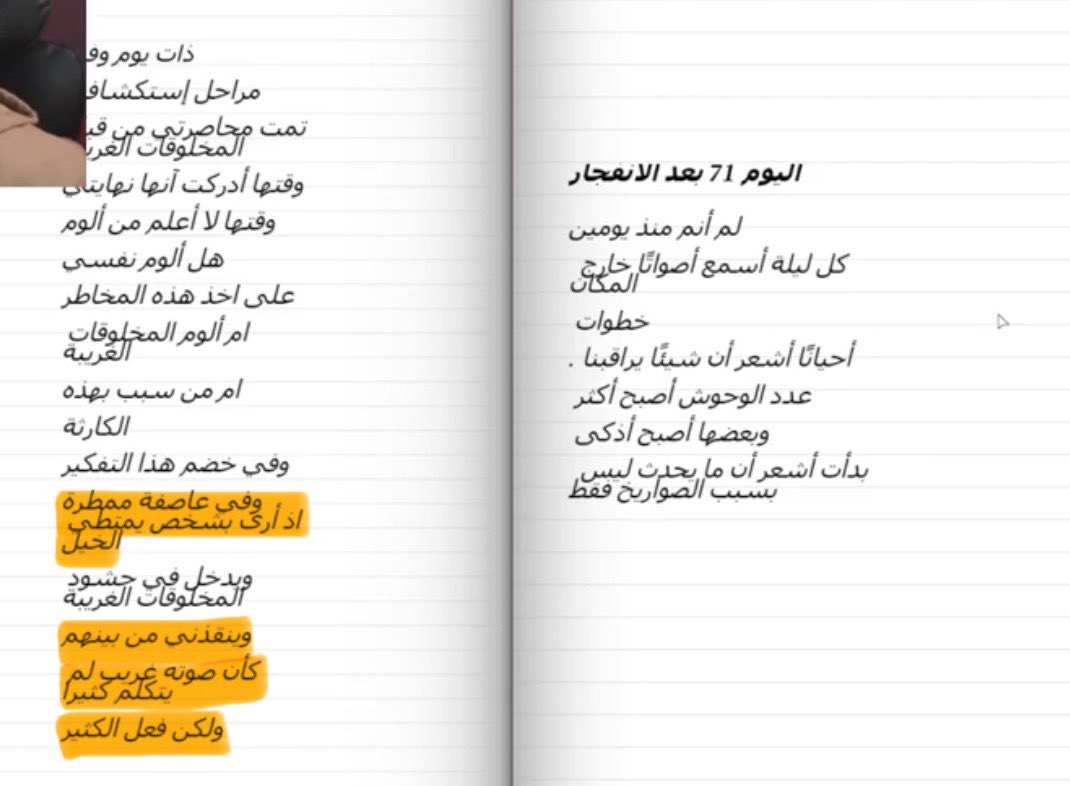 ذات يوم
مراحل
تمت محاصرتي من
المخلوقات
وقتها أدركت آنها نهايتي
وقتها لا أعلم من ألوم
هل ألوم نفسي
على اخذ هذه المخاطر
ام ألوم المخلوقات
الغريبة
ام من سبب بهذه
الكارثة
وفي خضم هذا التفكير
وفي عاصفة ممطرة
اذ أرى بشخص يمتطي
الخيل
ويدخل في حشود
المخلوقات الغريبة
وينقذني من بينهم
كأن صوته غريب لم
يتكلم كثيرا
ولكن فعل الكثير
اليوم 71 بعد الانفجار
لم أنم منذ يومين
كل ليلة أسمع أصواتًا خارج
المكان
خطوات
أحيانًا أشعر أن شيئًا يراقبنا .
عدد الوحوش أصبح أكثر
وبعضها أصبح أذكى
بدأت أشعر أن ما يحدث ليس
بسبب الصواريخ فقط